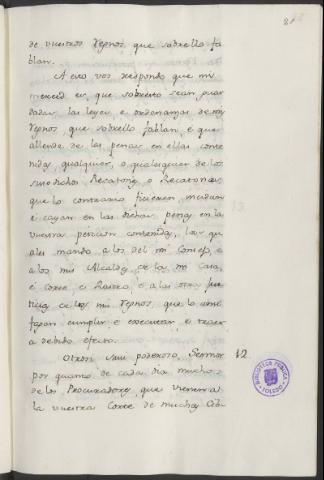 21
de vuestros Regnos, que sobrello fa
blan.
A esto vos respondo que mi
merced es, que sobresto sean guar
dadas las leyes, e ordenanzas de mis
Regnos, que sobrello fablan, e que
allende de las penas en ellas conte
nidas, qualquier, o qualesquier de los
susodichos Recatones, o Recatonas
que lo contrario ficieren, incurran
e cayan en las dichas penas en la
vuestra peticion contenidas, las qu
ales mando a los del mi Consejo, e
a los mis Alcaldes de la mi Casa,
e Corte, e Rastro, e a las otras jus
ticias de los mis Regnos, que lo ansi
fagan cumplir e executar, e traer
a debido efecto.
Otrosi mui poderoso Sennor 12
por quanto de cada dia muchos
de los Procuradores, que vienen a
la vuestra Corte de muchas Cib
BIBLIOTECA PUBLICA TOLEDO